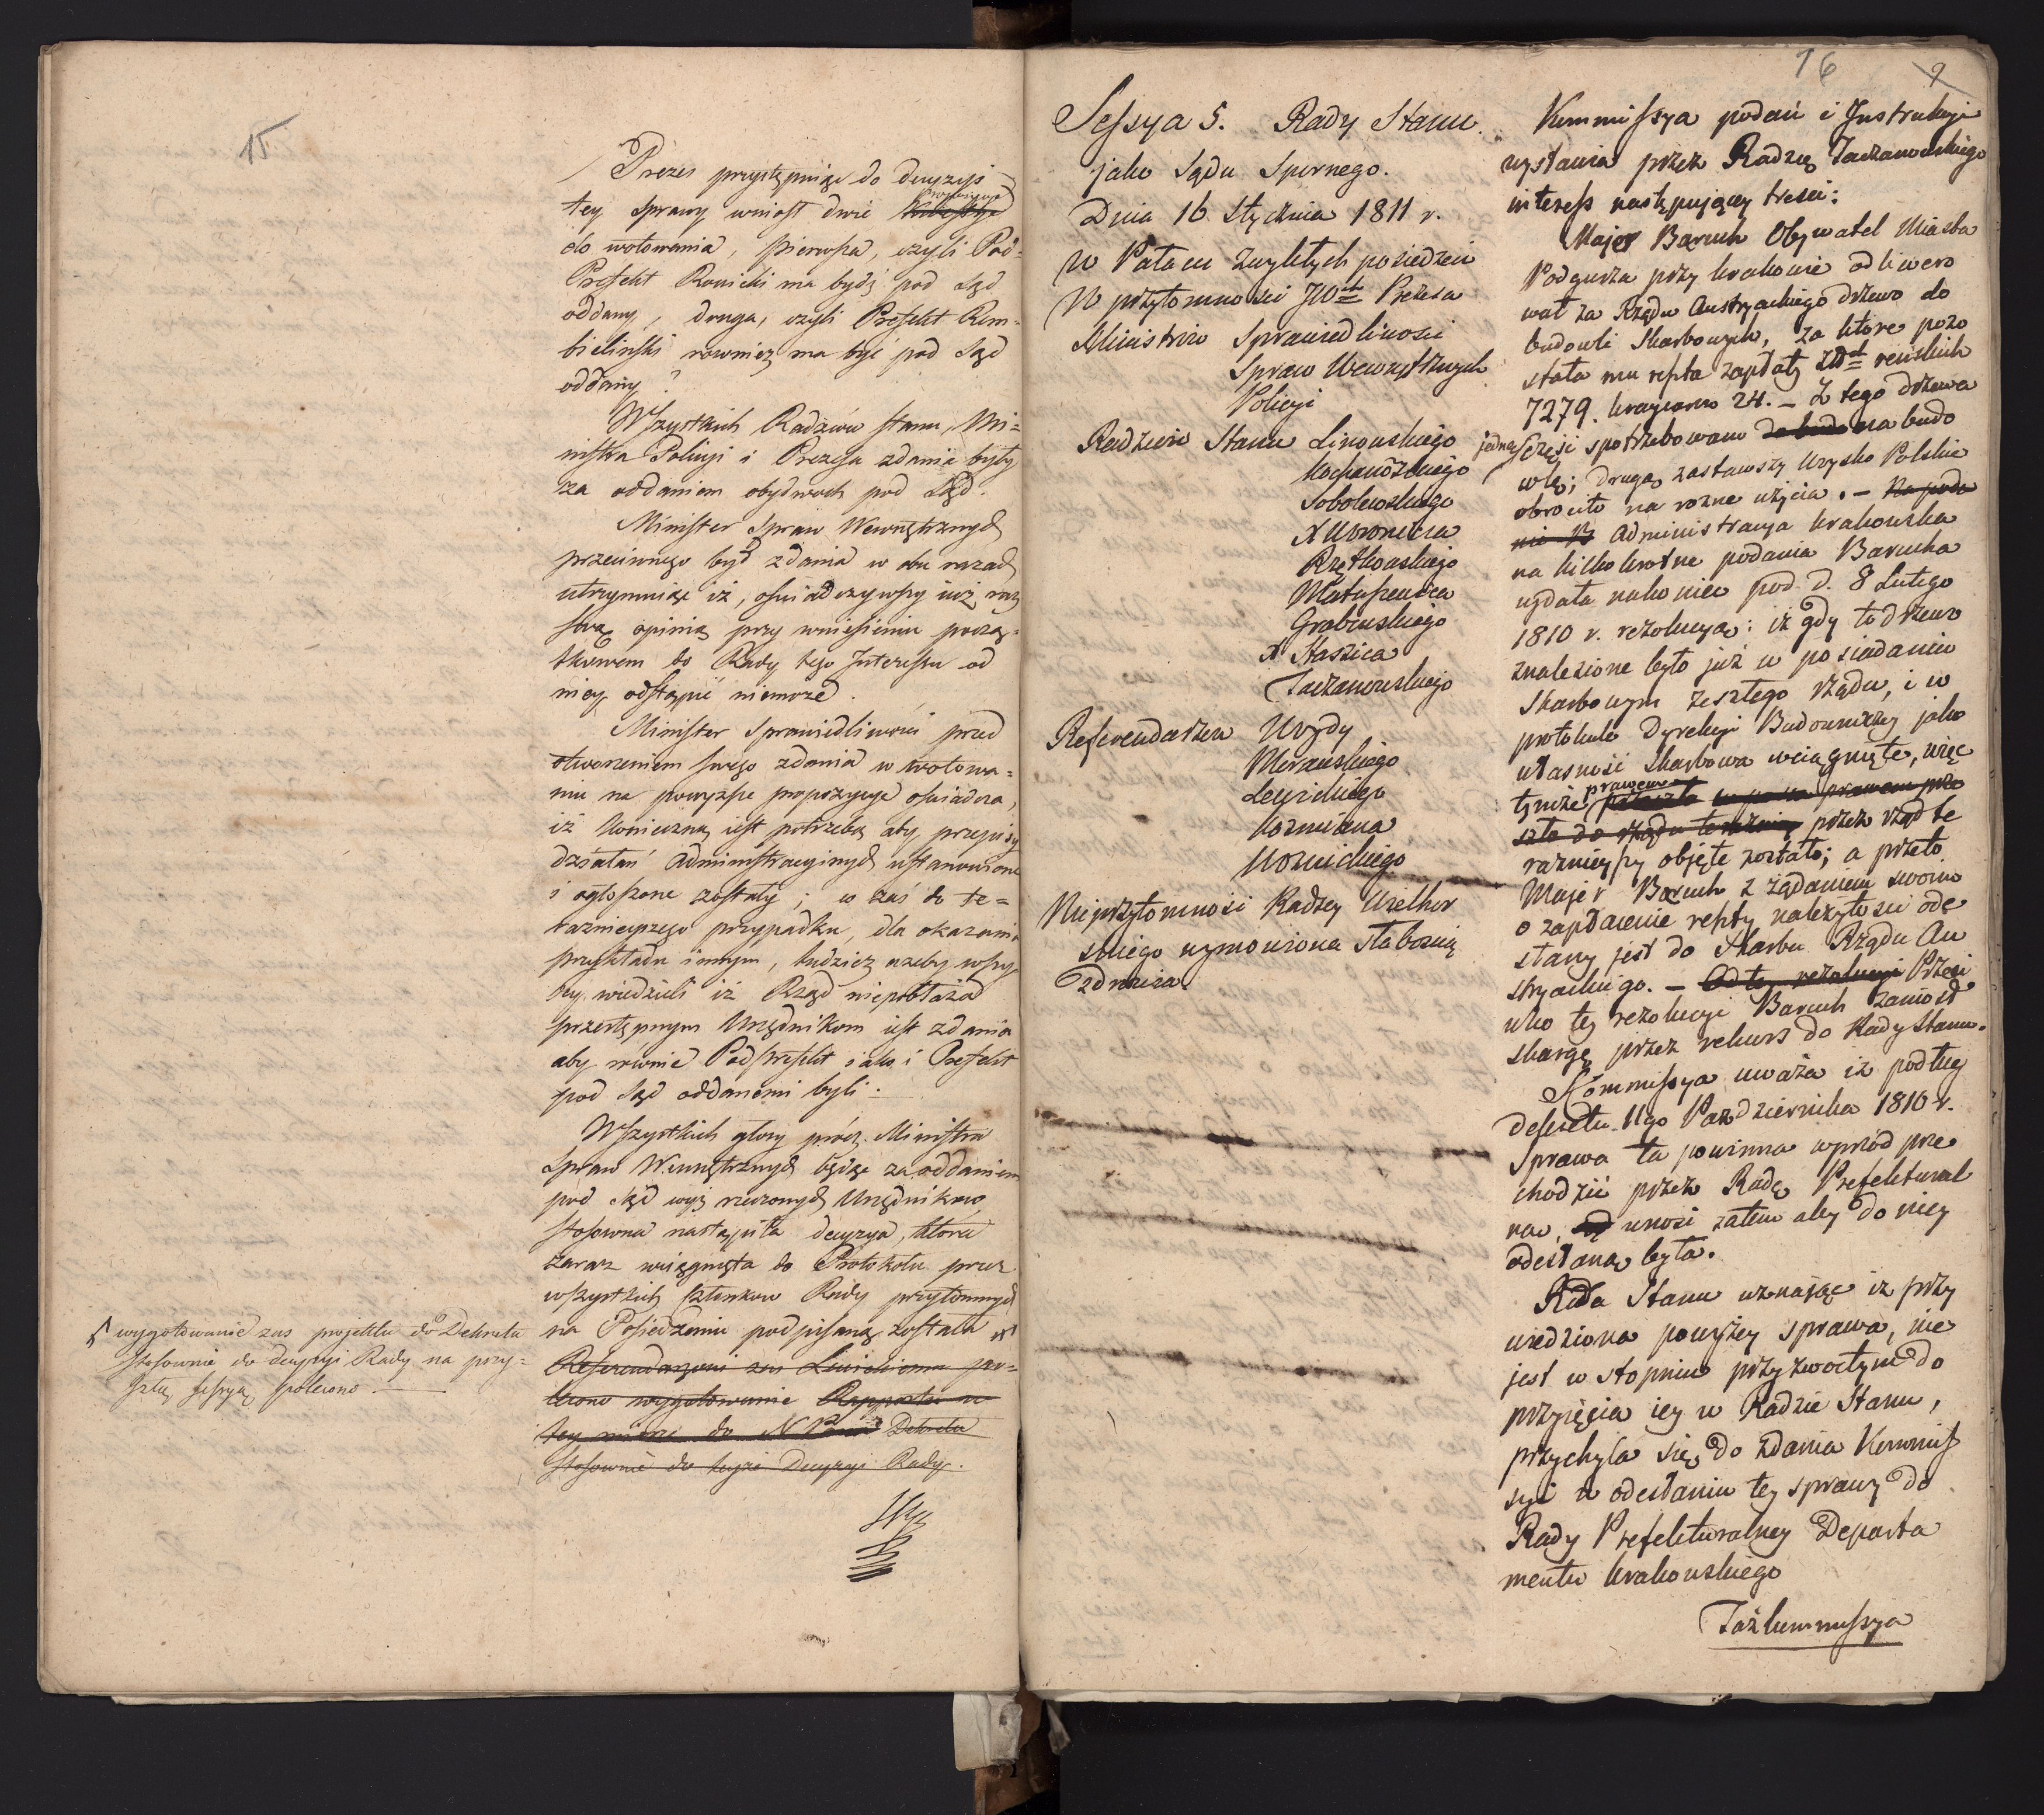 15
Prezes przystępuiąc do decyzyi
tey sprawy wniosł dwie kwestye propozycye
do wotowania, pierwsza, czyli Pod-
Prefekt Rowicki ma bydź pod Sąd
oddany, druga, czyli Prefekt Rem-
bieliński rowniez ma być pod Sąd
oddany?
Wszystkich Radzców Stanu, Mi-
nistra Policyi i Prezesa zdania były
za oddaniem obydwoch pod Sąd.
Minister Spraw Wewnętrznych
przeciwnego był zdania w obu razach
utrzymuiąc iż, oświadczywszy iuż raz
swą opinią przy wniesieniu począ-
tkowem do Rady tego Interessu od
niey odstąpić niemoże.
Minister Sprawiedliwości przed
otworzeniem swego zdania w wotowa-
niu na powyższe propozycye oświadcza,
iż konieczną iest potrzebą aby przepisy
działań Administracyinych ustanowione
i ogłoszone zostały; co zaś do te-
raznieyszego przypadku, dla okazania
przykładu innym, tudzież azeby wszy-
scy wiedzieli iż Rząd niepobłaża
przestępnym Urzędnikom iest zdania
aby rownie Podprefekt iako i Prefekt
pod Sąd oddanemi byli.
Wszystkich głosy prócz Ministra
Spraw Wewnętrznych będąc za oddaniem
pod Sąd wyż rzeczonych Urzędników,
stosowna nastąpiła decyzya, ktora
zaraz wciągnięta do Protokołu przez
wszystkich Członkow Rady przytomnych
na Posiedzeniu podpisaną została
Referendarzowi zas Lewickiemu po-
lecono wygotowanie Rapportu w
tey mierze do N Pana Dekretu
stosownie do teyże Decyzyi Rady.
wygotowanie zas projektu do Dekretu
stosownie do decyzyi Rady na przy-
szłą sessyą polecono
16
9
Sessya 5. Rady Stanu
jako Sądu Spornego.
Dnia 16 Stycznia 1811 r.
W Pałacu zwykłych posiedzeń
W przytomności JW Prezesa
Ministrów Sprawiedliwości
Spraw Wewnętrznych
Policyi
Radzców Stanu Linowskiego
Kochanowskiego
Sobolewskiego
X Woronicza
Rzętkowskiego
Matuszewica
Grabowskiego
X Staszica
Taczanowskiego
Referendarzew Wozdy
Morawskiego
Lewickiego
Kozmiana
Woznickiego
Nieprzytomność Radzcy Wielhor
skiego wymowiona słabością
zdrowia.
Kommissya podań i Instrukcyi
wystawia przez Radzcę Taczanowskiego
interess następuiącey tresci:
Majer Baruch Obywatel Miasta
Podgurza przy krakowie odliwero
wał za Rządu Austryackiego drzewo do
budowli Skarbowych, za ktore pozo
stała mu reszta zapłaty Złt reńskich
7279. kraycarow 24. – Z tego drzewa
jedną część spotrzebowano do budo na budo
wlę; drugą zastawszy Woysko Polskie
obrociło na rozne użycia. – Na poda
nie B Administracya krakowska
na kilkokrotne podania Barucha
wydała nakoniec pod d. 8 Lutego
1810 r. rezolucyą: iż gdy to drzewo
znalezione było już w posiadaniu
Skarbowym zeszłego rządu, i w
protokule Dyrekcyi Budowniczey jako
własność Skarbowa wciągnięte, więc
tymże prawem przez rząd te
raznieyszy objęte zostało; a przeto
Majer Baruch z żądaniem swoim
o zapłacenie reszty należytości ode
słany jest do Skarbu Rządu Au
stryackiego. – Od tey rezolucyi Przeci
wko tey rezolucyi Baruch zaniosł
skargę przez rekurs do Rady Stanu.
Kommissya uważa iż podług
dekretu 11go Pazdziernika 1810 r.
Sprawa ta powinna wprzód prze
chodzić przez Radę Prefektural
ną, wnosi zatem aby do niey
odesłaną była.
Rada Stanu uznając iż przy
wiedziona powyżey sprawa, nie
jest w stopniu przyzwoitym do
przyięcia iey w Radzie Stanu,
przychyla się do zdania Kommis
syi w odesłaniu tey sprawy do
Rady Prefekturalney Departa
mentu krakowskiego
Taż kommissya